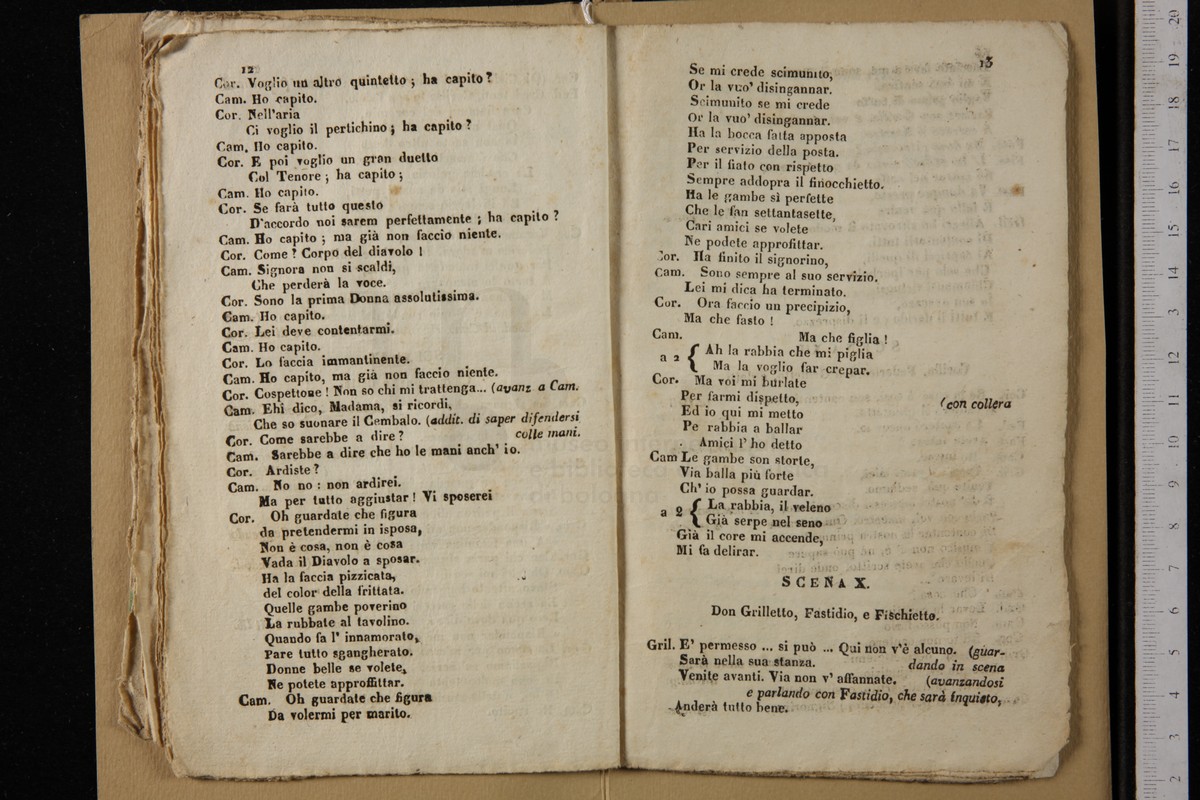 12
Cor. Voglio un altro quintetto ; ha capito ?
Cam. Ho capito.
Cor. Nell'aria
Ci voglio il pertichino ; ha capito ?
Cam. Ho capito.
Cor. E poi voglio un gran duetto
Col Tenore ; ha capito ;
Cam. Ho capito.
Cor. Se farà tutto questo
D'accordo noi sarem perfettamente ; ha capito ?
Cam. Ho capito ; ma già non faccio niente.
Cor. Come ? Corpo del diavolo !
Cam. Signora non si scaldi,
Che perderà la voce.
Cor. Sono la prima Donna assolutissima.
Cam. Ho capito.
Cor. Lei deve contentarmi.
Cam. Ho capito.
Cor. Lo faccia immantinente.
Cam. Ho capito, ma già non faccio niente.
Cor. Cospettone ! Non so chi mi trattenga... (avanz a Cam.
Cam. Ehi dico, Madama, si ricordi,
Che so suonare il Cembalo. (addit. di saper difendersi
Cor. Come sarebbe a dire ? colle mani.
Cam. Sarebbe a dire che ho le mani anch' io.
Cor. Ardiste ?
Cam. No no : non ardirei.
Ma per tutto aggiustar ! Vi sposerei
Cor. Oh guardate che figura
da pretendermi in isposa,
Non è cosa, non è cosa
Vada il Diavolo a sposar.
Ha la faccia pizzicata,
del color della frittata.
Quelle gambe poverino
La rubbate al tavolino.
Quando fa l' innamorato,
Pare tutto sgangherato.
Donne belle se volete,
Ne potete approffittar.
Cam. Oh guardate che figura
Da volermi per marito.
13
Se mi crede scimunito,
Or la vuo' disingannar.
Scimunito se mi crede
Or la vuo' disingannar.
Ha la bocca fatta apposta
Per servizio della posta.
Per il fiato con rispetto
Sempre addopra il finocchietto.
Ha le gambe sì perfette
Che le fan settantasette,
Cari amici se volete
Ne podete approfittar.
Cor. Ha finito il signorino,
Cam. Sono sempre al suo servizio.
Lei mi dica ha terminato.
Cor. Ora faccio un precipizio,
Ma che fasto !
Cam. Ma che figlia !
a 2 { Ah la rabbia che mi piglia
Ma la voglio far crepar.
Cor. Ma voi mi burlate
Per farmi dispetto,
Ed io qui mi metto (con collera
Pe rabbia a ballar
Amici l' ho detto
Cam Le gambe son storte,
Via balla più forte
Ch' io possa guardar.
a 2 { La rabbia, il veleno
Già serpe nel seno
Già il core mi accende,
Mi fa delirar.
SCENA X.
Don Grilletto, Fastidio, e Fischietto.
Gril. E' permesso ... si può ... Qui non v'è alcuno. (guar-
Sarà nella sua stanza. dando in scena
Venite avanti. Via non v' affannate. (avanzandosi
e parlando con Fastidio, che sarà inquieto,
Anderà tutto bene.
2 3 4 5 6 7 8 9 10 11 12 13 14 15 16 17 18 19 20